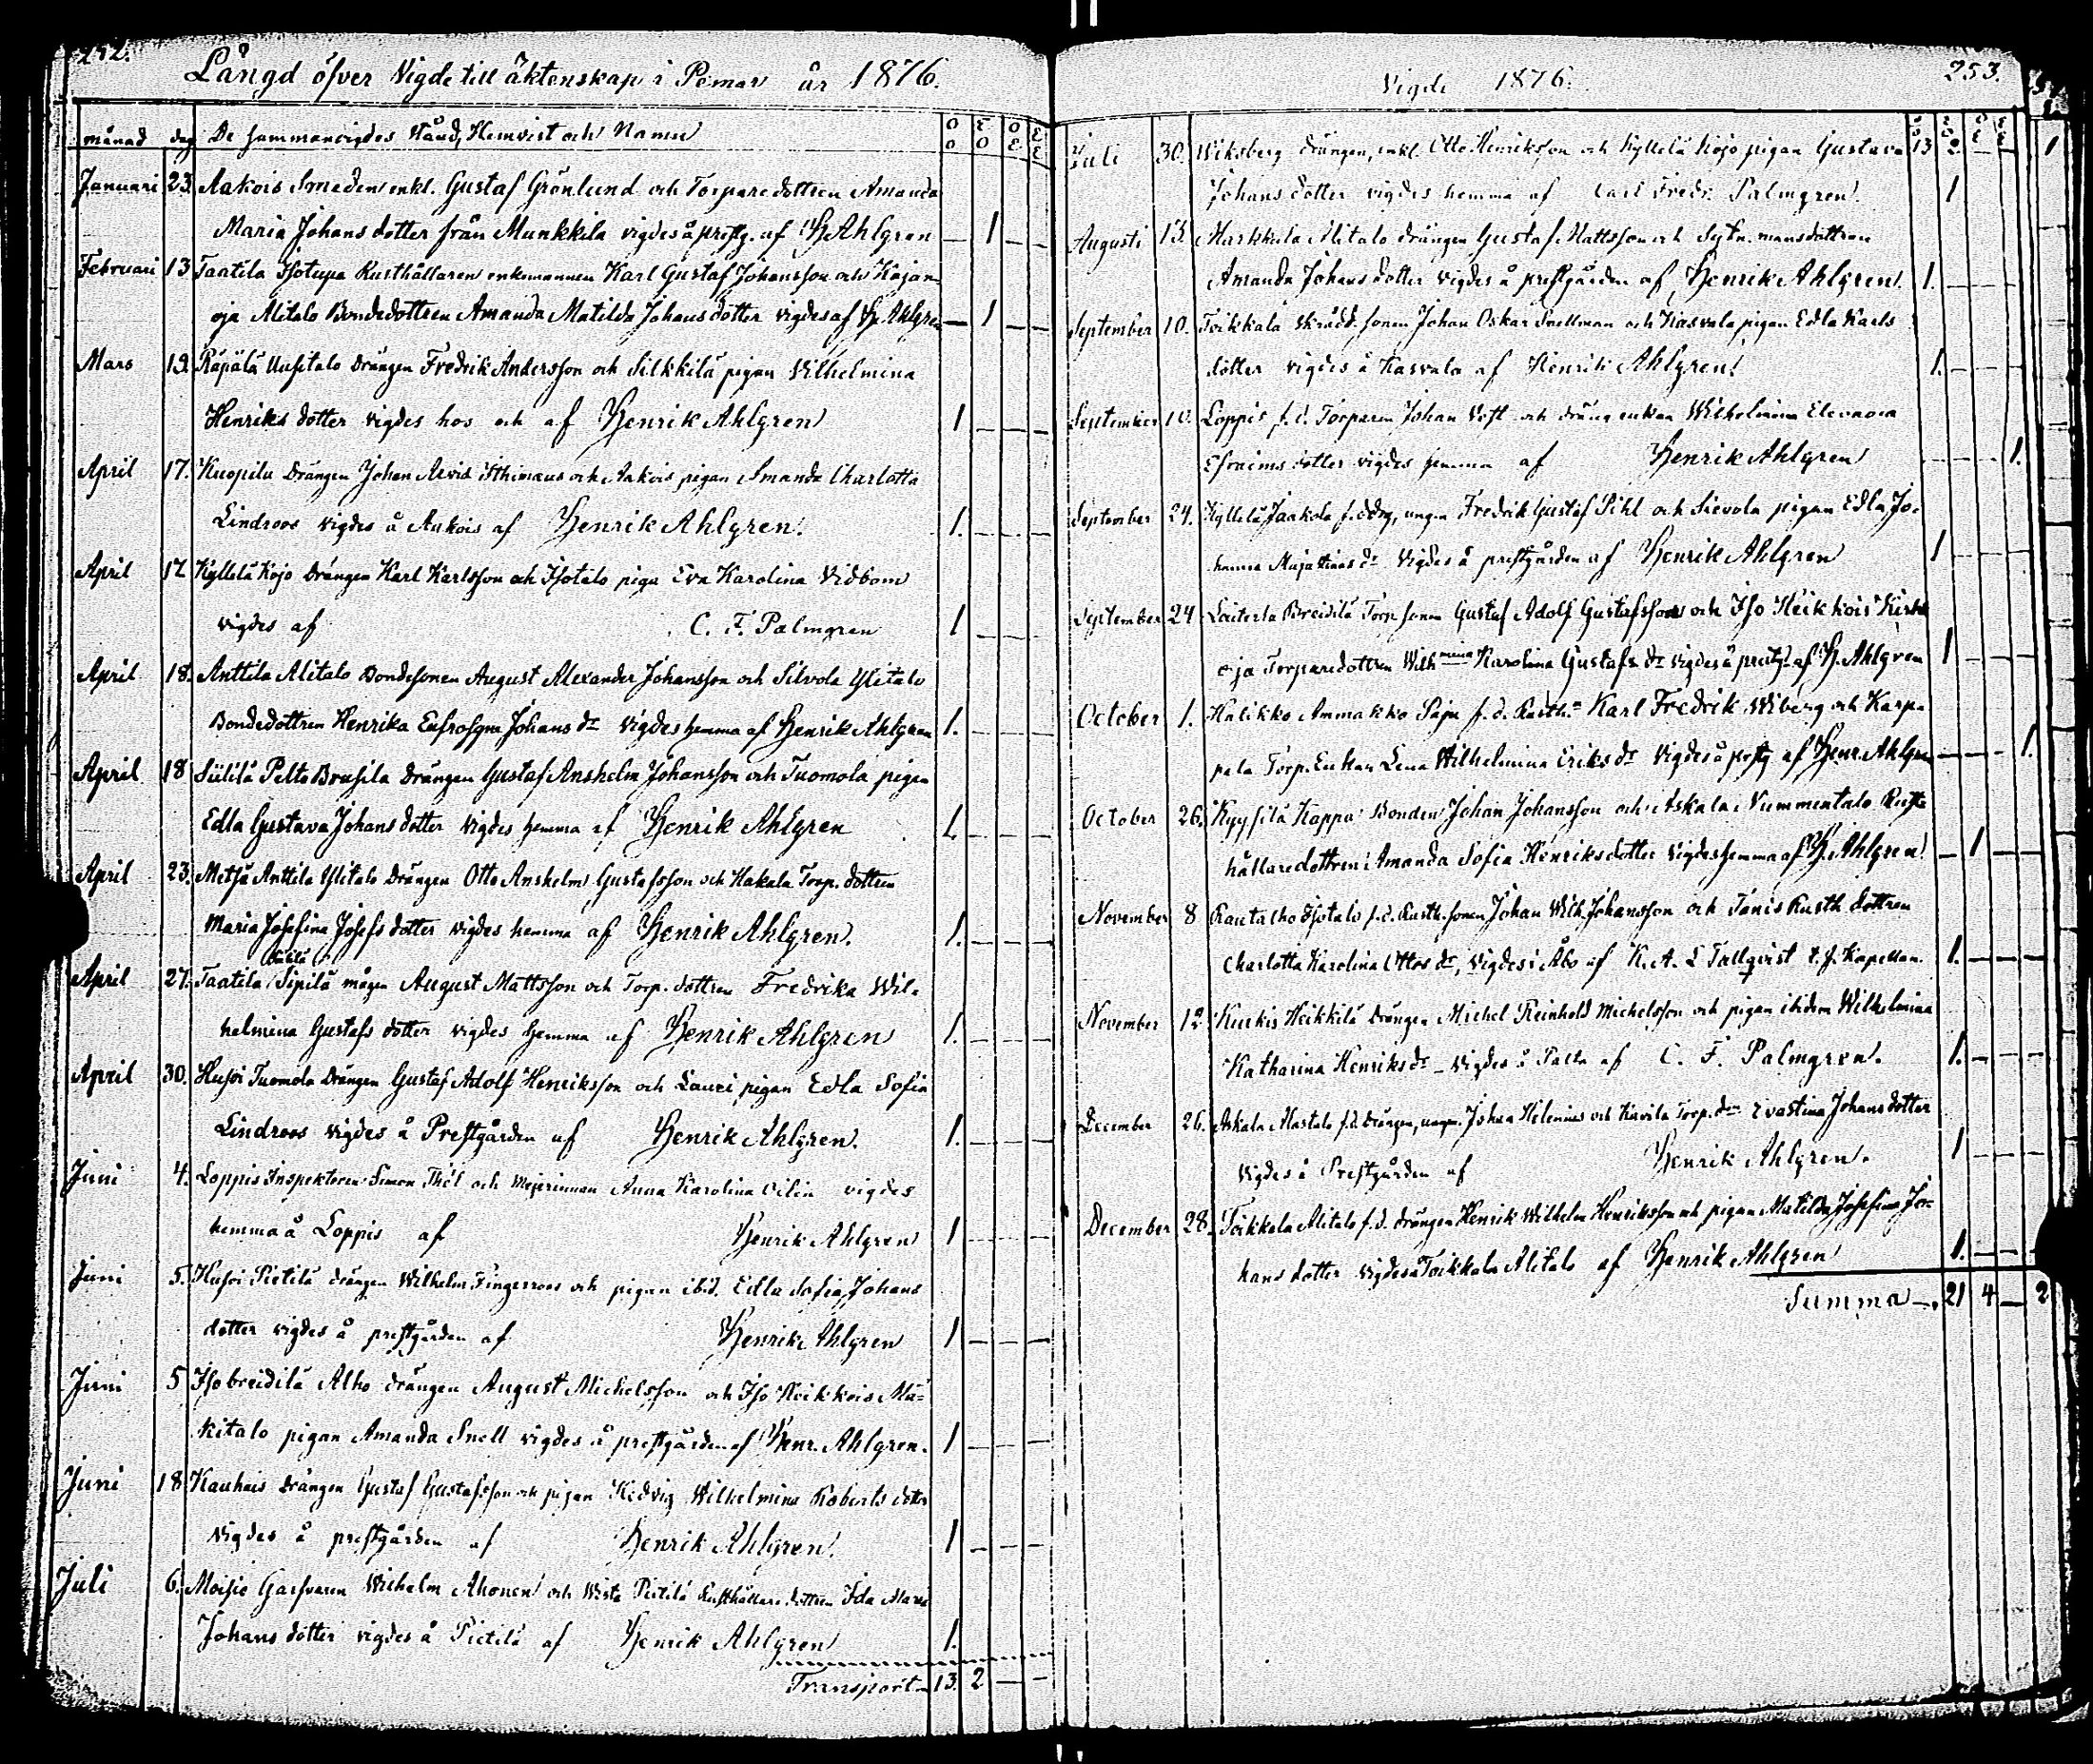 252.
Längd öfver Vigde till äktenskap i Pemar år 1876.
månad dag De sammanvigdes Stånd, Hemvist och Namn
Januari 23. Aakois Smeden enkl. Gustaf Grönlund och Torparedottren Amanda
Maria Johansdotter från Munkkila vigdes å prestg. af H. Ahlgren — 1 — —
Februari 13 Taatila Isotupa Rusthållaren enkomannen Karl Gustaf Johansson och Kajan-
oja Alitalo Bondedottren Amanda Matilda Johansdotter vigdes af H. Ahlgren — 1 — —
Mars 19. Räpälä Uusitalo Drängen Fredrik Andersson och Silkkilä pigan Vilhelmina
Henriksdotter vigdes hos och af Henrik Ahlgren 1 — — —
April 17. Kuopila Drängen Johan Arvid Ithimaus och Aakois pigan Amanda Charlotta
Lindroos vigdes å Aakois af Henrik Ahlgren. 1. — — —
April 17. Kyllelä Kojo Drängen Karl Karlsson och Isotalo piga Eva Karolina Vidbom
vigdes af C. F. Palmgren 1 — — —
April 18. Anttila Alitalo Bondesonen August Alexander Johansson och Silvola Ylitalo
Bondedottren Henrika Eufrosyne Johans dr vigdes hemma af Henrik Ahlgren 1. — — —
April 18 Sülilä Pelto Brusila Drängen Gustaf Anshelm Johansson och Tuomola pigan
Edla Gustava Johansdotter vigdes hemma af Henrik Ahlgren 1. — — —
April 23. Metsä Anttila Ylitalo Drängen Otto Anshelm Gustafsson och Hakala Torp. dottren
Maria Josefina Josefsdotter vigdes hemma af Henrik Ahlgren. 1. — — —
April 27. Taatila Sipilä mågen August Mattsson och Torp. dottren Fredrika Wil-
helmina Gustafsdotter vigdes hemma af Henrik Ahlgren 1. — — —
April 30. Husoi Tuomola Drängen Gustaf Adolf Henriksson och Lauri pigan Edla Sofia
Lindroos vigdes å Prestgården af Henrik Ahlgren. 1. — — —
Juni 4. Loppis Inspektoren Simon Thól och Mejerinnan Anna Karolina vigdes
hemma å Loppis af Henrik Ahlgren 1 — — —
Juni 5. Husoi Pietilä drängen Wilhelm Fingerroos och pigan ibid. Edla Sofia Johans
dotter vigdes å prestgården af Henrik Ahlgren 1 — — —
Juni 5 Isobreidilä Alho drängen August Michelsson och Iso Heikkois Mä-
kitalo pigan Amanda Snell vigdes å prestgården af Henr. Ahlgren. 1 — — —
Juni 18 Kauhais Drängen Gustaf Gustafsson och pigan Hedvig Wilhelmina Robertsdotter
vigdes å prestgården af Henrik Ahlgren. 1 — — —
Juli 6. Moisio Garfvaren Wilhelm Ahonen och Wista Pietilä Rusthållaredottren Ida Maria
Johansdotter vigdes å Pietilä af Henrik Ahlgren 1.
Transport — 13. 2 — —
Vigde 1876.
253.
Juli 30. Wiksberg drängen, enkl. Otto Henriksson och Kyllelä Kojo pigan Gustava 13 2. — —
Johansdotter vigdes hemma af Carl Fredr. Palmgren. 1
Augusti 13. Markkula Alitalo drängen Gustaf Mattsson och Sextn. mansdottren
Amanda Johansdotter vigdes å prestgården af Henrik Ahlgren. 1. — — —
September 10. Toikkala Skrädd. sonen Johan Oskar Snellman och Kasvala pigan Edla Karls
dotter vigdes å Kasvala af Henrik Ahlgren. 1. — — —
September 10. Loppis f. d. Torparen Johan Vest och drängenkan Wilhelmina Eleonora
Efraimsdotter vigdes hemma af Henrik Ahlgren — — — 1.
September 24. Kyllelä Jaakola f. d. drg, ungn. Fredrik Gustaf Pihl och Sievola pigan Edla Jo-
hanna Majastinas dr vigdes å prestgården af Henrik Ahlgren 1 — — —
September 24 Breidilä Torp sonen Gustaf Adolf Gustafsson och Iso Heikkois
oja Torparedottren Wilhmina Karolina Gustafs dr vigdes å prestg. af H. Ahlgren 1 — — —
October 1. Halikko Ammakko Saju f. d. Rusth. Karl Fredrik Wiberg och Karpa-
pala Torp. Enkan Lena Wilhelmina Eriks dr vigdes å prstg af Henr. Ahlgren — — — 1.
October 26. Kyysilä Kappa Bonden Johan Johansson och Askala Nummentalo Rust-
hållaredottren Amanda Sofia Henriksdotter vigdes hemma af H. Ahlgren. — 1 — —
November 8 Rautalho Isotalo f. d. Rusth. sonen Johan Wilh. Johansson och Tanis Rusth dottren
Charlotta Karolina Ottos dr, vigdes i Åbo af K. A. L Tallqvist t. f. Kapellan. 1. — — —
November 12 Kurkis Heikkilä Drängen Michel Reinhold Michelsson och pigan ibidem Wilhelmina
Katharina Henriks dr — vigdes å Palta af C. F. Palmgren. 1. — — —
December 26. Askala Alastalo f. d. drängen, ungn. Johan Helenius och Kavila Torp. dr Evastina Johansdotter
vigdes å Prestgården af Henrik Ahlgren. 1 — — —
December 28. Toikkala Alitalo f. d. drängen Henrik Wilhelm Henriksson och pigan Matilda Josefina Jo-
hansdotter vigdes å Toikkala Alitalo af Henrik Ahlgren 1. — — —
Summa —. 21 4 — 2